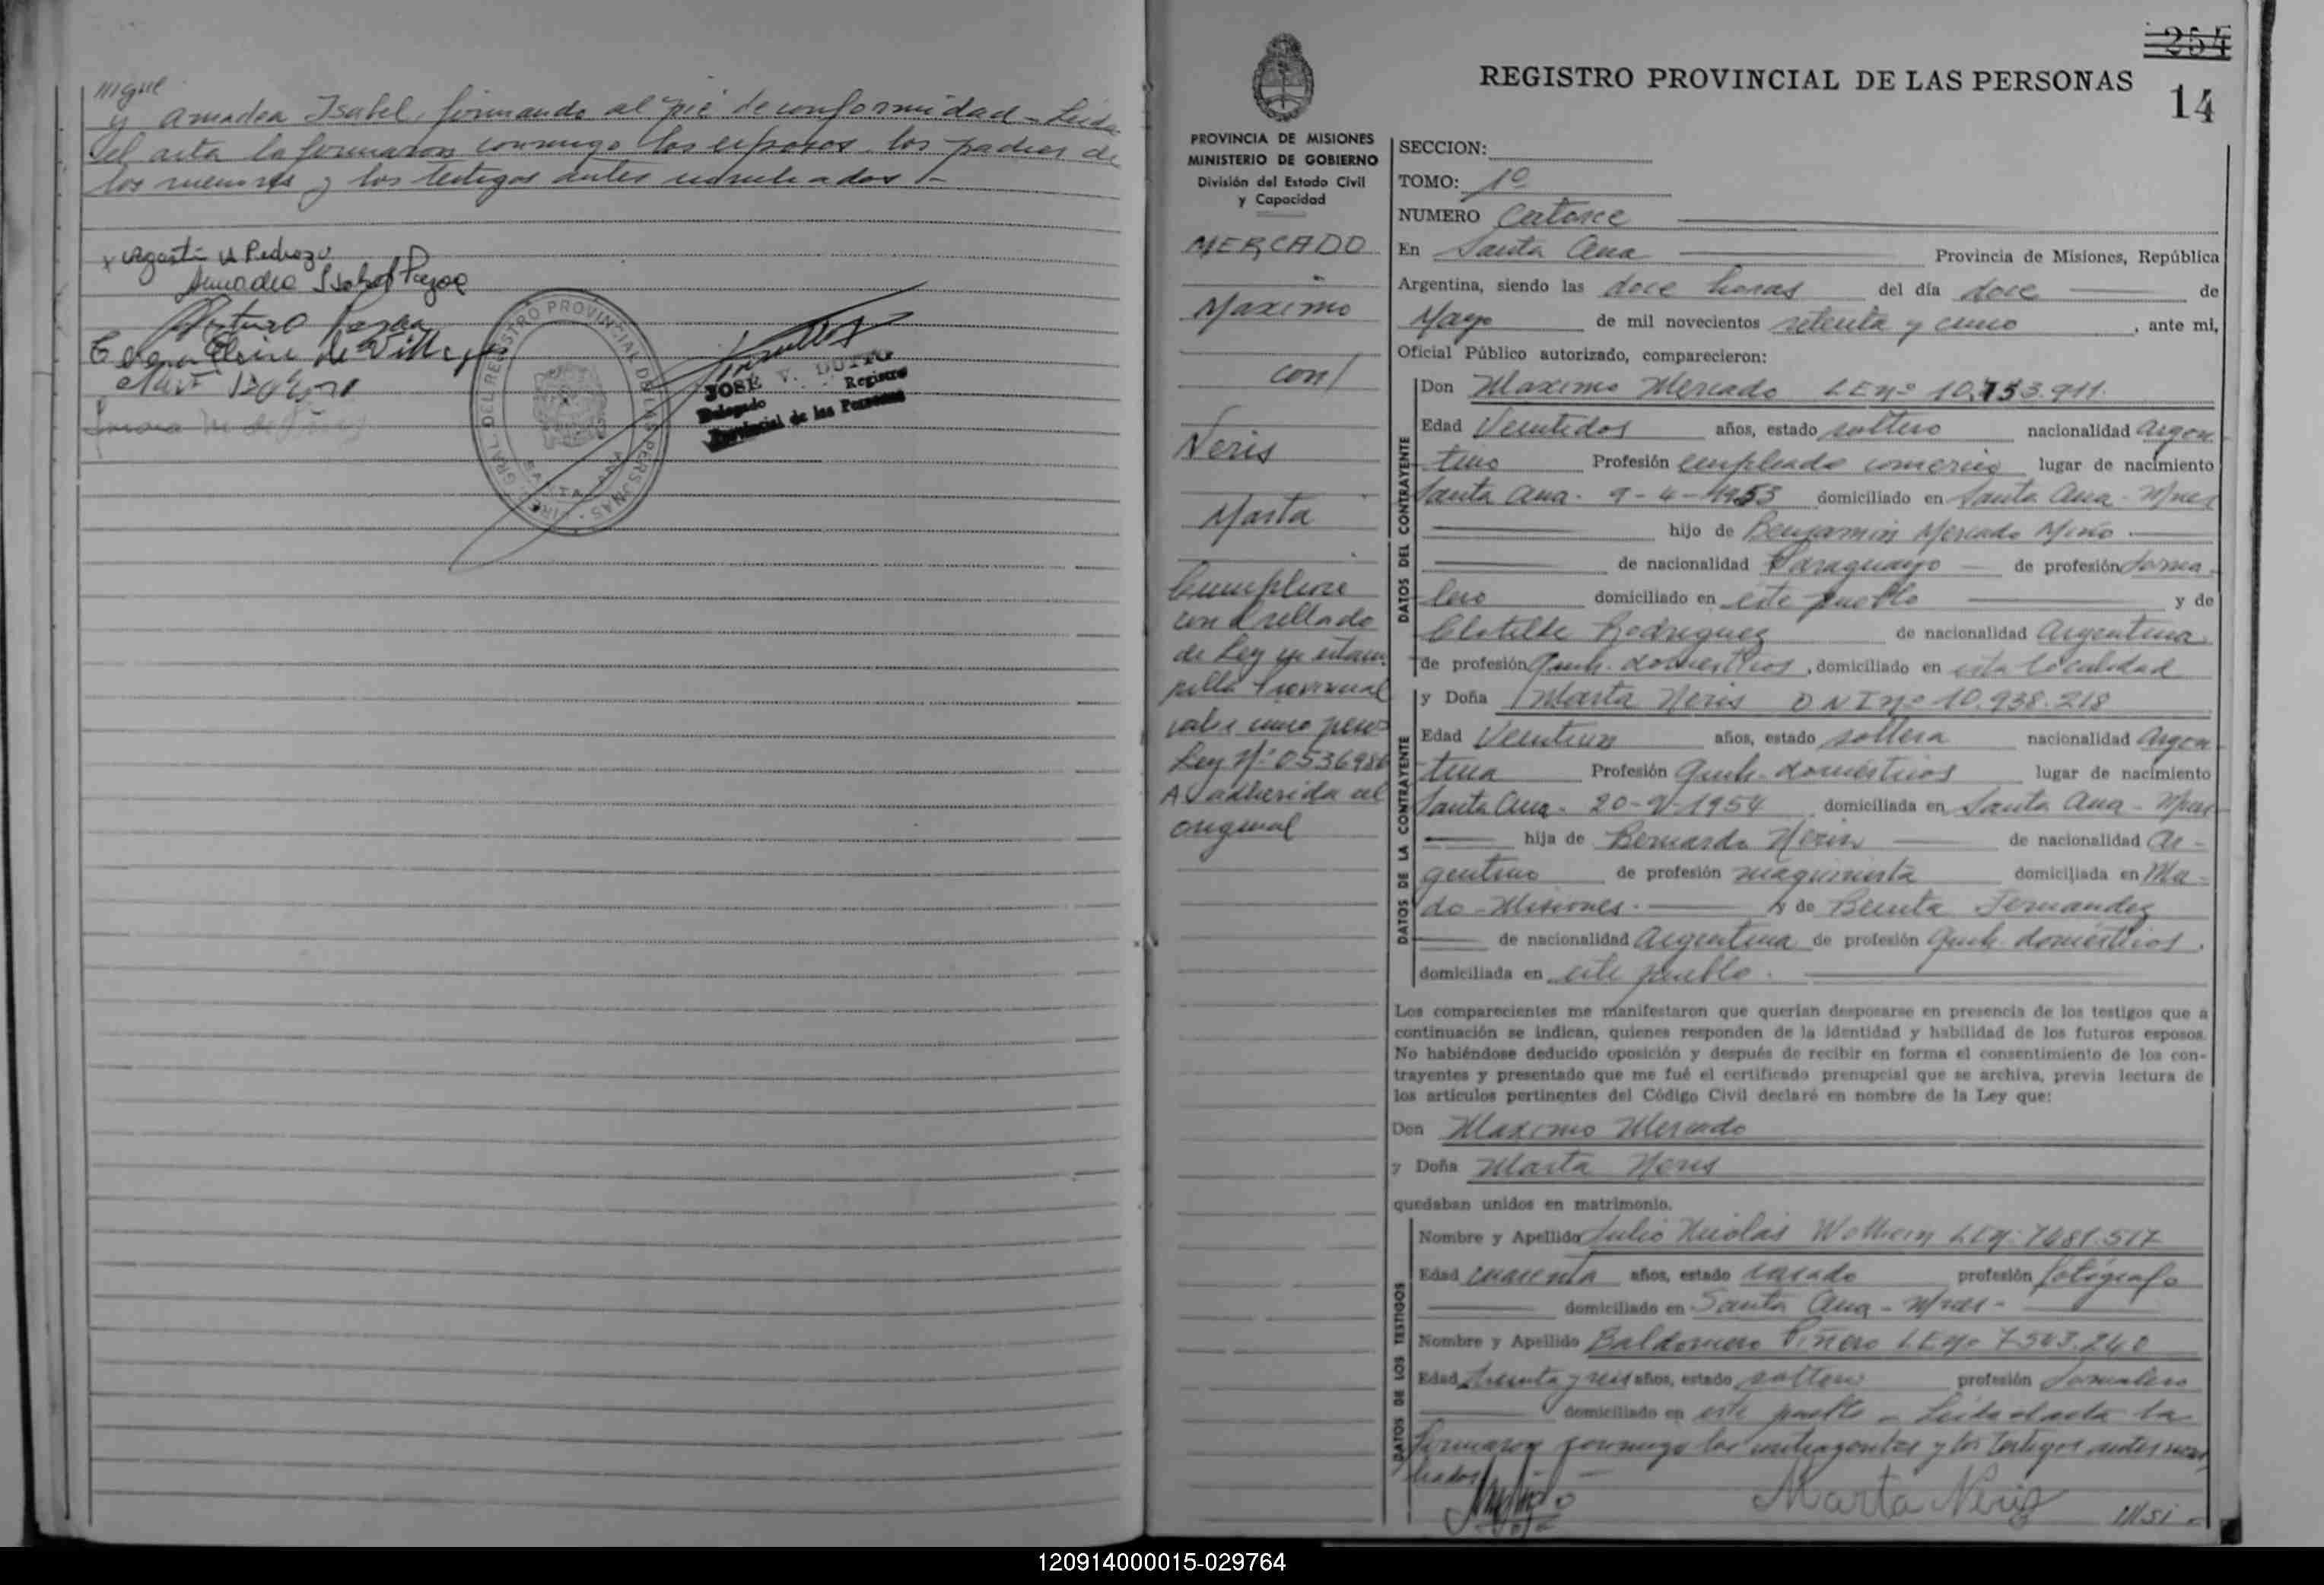 y Amadea Isabel, firmando al pie de conformidad - Leida
el acta la firmaron conmigo los esposos, los padres de
los menores y los testigos antes
x Agosti A Pedrozo
Amadea Isabel
Arturo
de
JOSE V. DUTTO
Delegado Registro
Provincial de las Personas
254
14
REGISTRO PROVINCIAL DE LAS PERSONAS
PROVINCIA DE MISIONES
MINISTERIO DE GOBIERNO
División del Estado Civil
y Capacidad
MERCADO
Maximo
con/
Neris
Marta
Cumplese
con el sellado
de Ley en estam
pilla Provincial
valor cinco pesos
Ley Nº 0536986
A adherida al
original
SECCION:
TOMO: 1º
NUMERO Catorce
En Santa Ana Provincia de Misiones, República
Argentina, siendo las doce horas del día doce de
Mayo de mil novecientos setenta y cinco, ante mi,
Oficial Público autorizado, comparecieron:
DATOS DEL CONTRAYENTE
Don Maximo Mercado LE nº 10.753.911.
Edad Veintidos años, estado soltero nacionalidad Argen
tino Profesión empleado comercio lugar de nacimiento
Santa Ana - 9-4-1953 domiciliado en Santa Ana - Mnes
hijo de Benjamin Mercado Miño
de nacionalidad Paraguayo de profesión Jorna
lero domiciliado en este pueblo y de
Clotilde Rodriguez de nacionalidad Argentina
de profesión Queh. domesticos, domiciliado en esta localidad
DATOS DE LA CONTRAYENTE
y Doña Marta Neris DNI nº 10.938.218
Edad Veintiun años, estado soltera nacionalidad Argen
tina Profesión Queh. domésticos lugar de nacimiento
Santa Ana - 20-V-1954 domiciliada en Santa Ana - Mnes
hija de Bernardo Neris de nacionalidad Ar-
gentino de profesión maquinista domiciliada en Ma-
do - Misiones. y de Benita Fernandez
de nacionalidad Argentina de profesión Queh. domésticos,
domiciliada en este pueblo.
Los comparecientes me manifestaron que querían desposarse en presencia de los testigos que a
continuación se indican, quienes responden de la identidad y habilidad de los futuros esposos.
No habiéndose deducido oposición y después de recibir en forma el consentimiento de los con-
trayentes y presentado que me fué el certificado prenupcial que se archiva, previa lectura de
los artículos pertinentes del Código Civil declaré en nombre de la Ley que:
Don Maximo Mercado
y Doña Marta Neris
quedaban unidos en matrimonio.
DATOS DE LOS TESTIGOS
Nombre y Apellido Julio Nicolás LE nº 7081.517
Edad cuarenta años, estado casado profesión fotógrafo
domiciliado en Santa Ana - Mnes -
Nombre y Apellido Baldomero Piñero LE nº 7543.240
Edad treinta y seis años, estado soltero profesión Jornalero
domiciliado en este pueblo - Leida el acta la
firmaron conmigo los contrayentes y los testigos antes nom
brados
Marta Neris
120914000015-029764